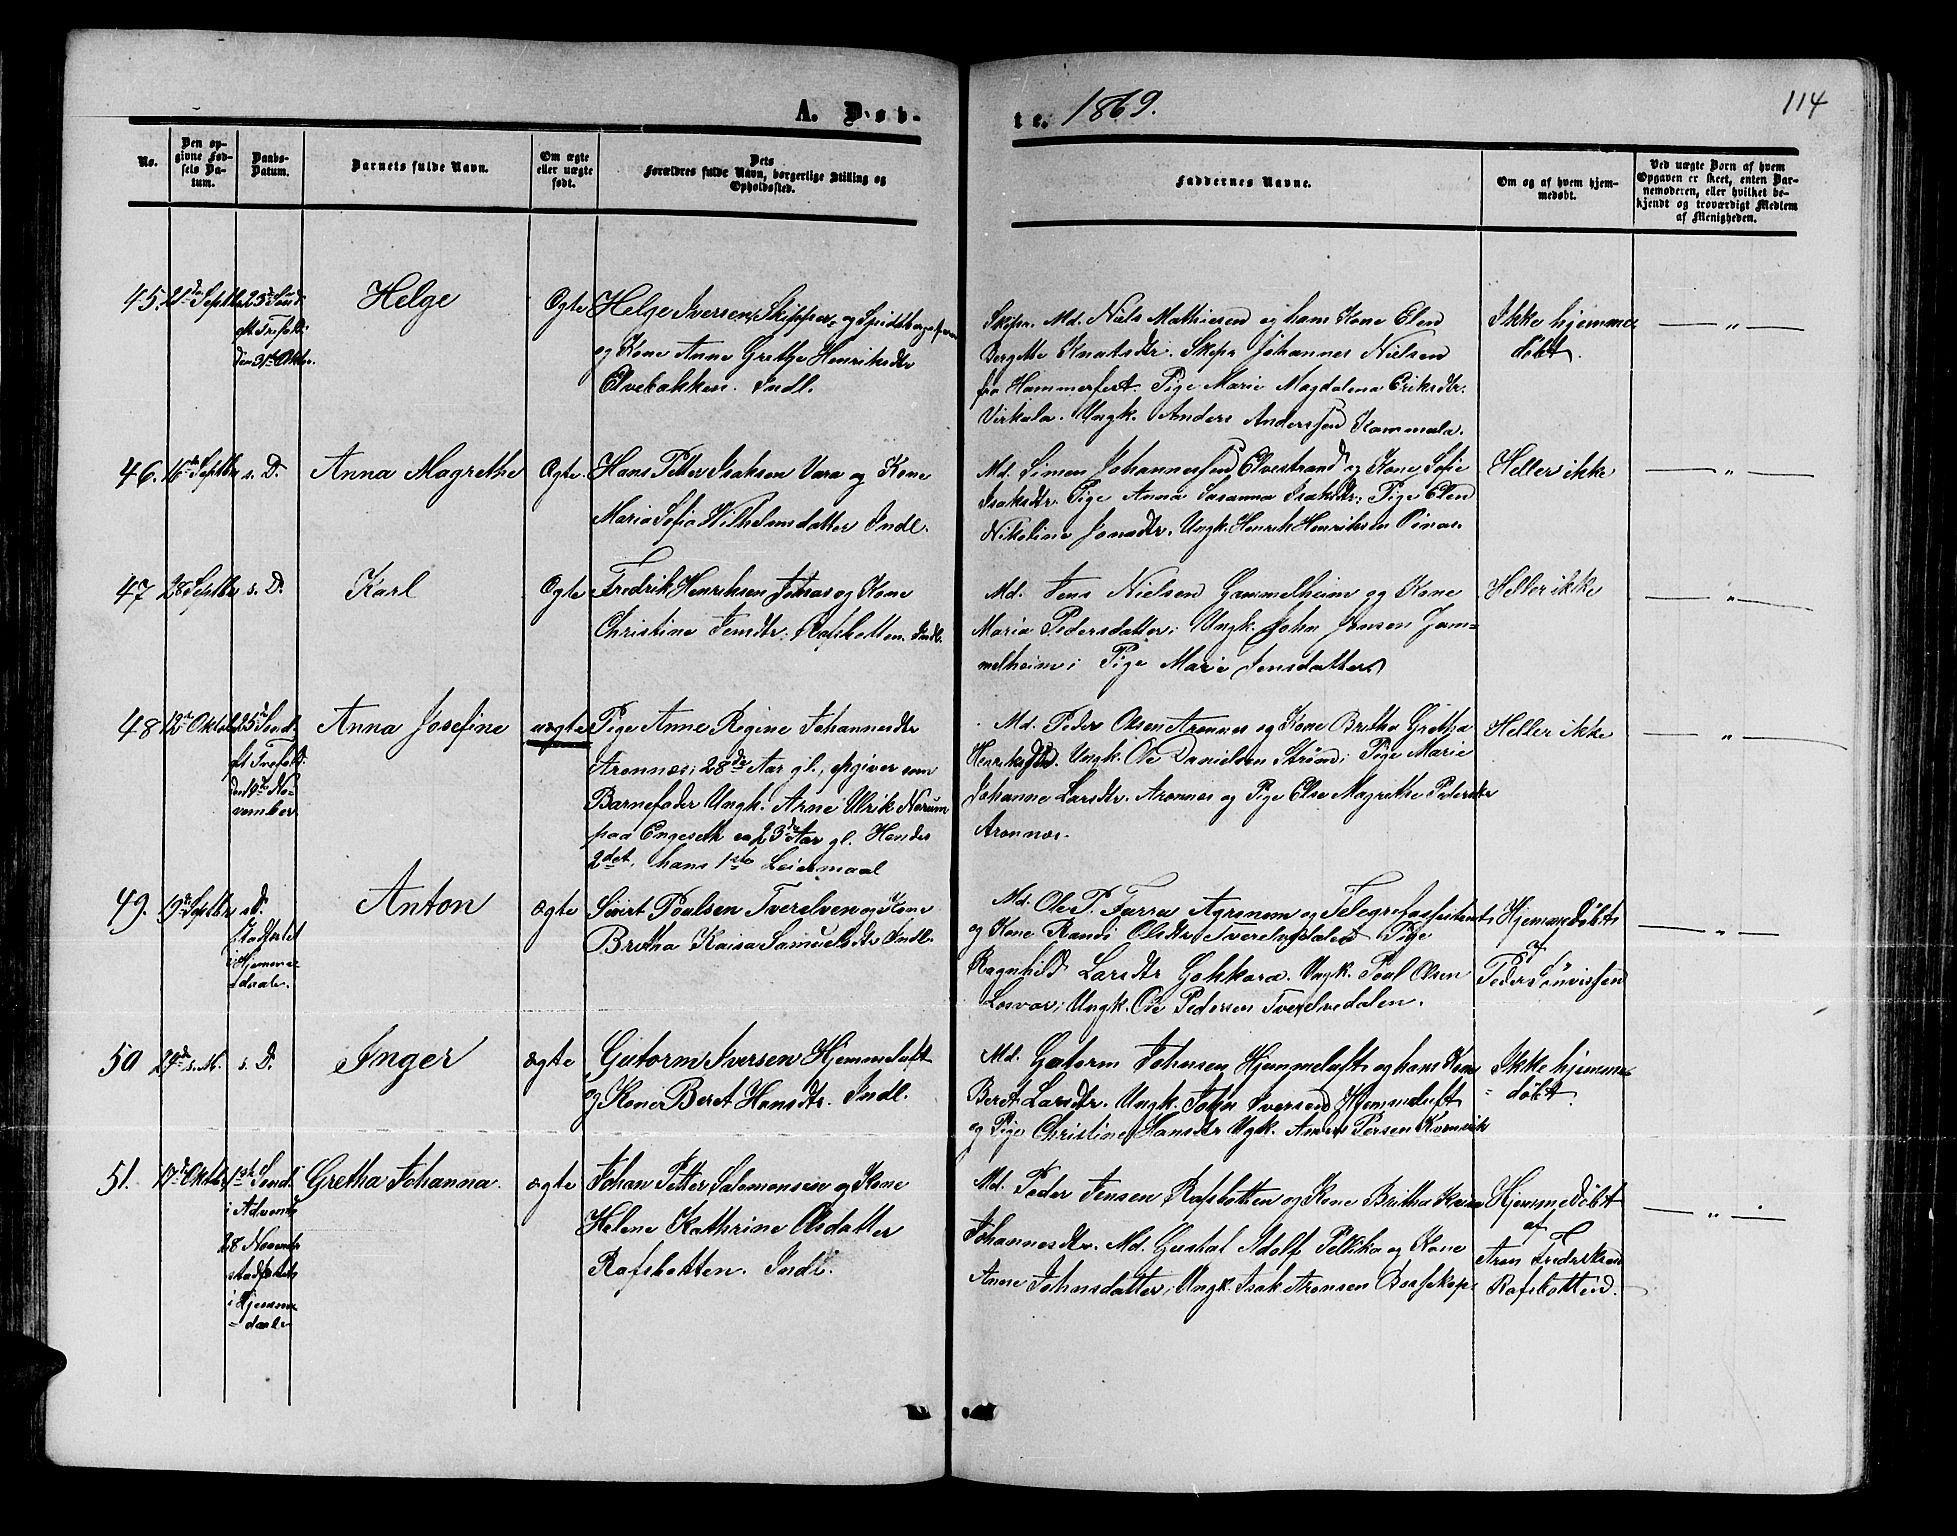 A. Døb-
te. 1869.
114
No.
Den op-
givne Fød-
sels Da-
tum.
Daabs-
Datum.
Barnets fulde Navn.
Om ægte
eller uægte
født.
Dets
Forældres fulde Navn, borgerlige Stilling og
Opholdssted.
Faddernes Navne.
Om og af hvem hjem-
medøbt.
Ved uægte Born af hvem
Opgaven er skeet, enten Bar-
nemoderen, eller hvilket be-
kjendt og troværdigt Medlem
af Menigheden.
45. 21de Septbr 23de Sønd.
eft Trefold:
den 31te Oktbr.
Helge
Ægte
Helge Iversen, Skipper- og
og Kone Anne Grethe Henriksdtr
Elvebakken. Indl.
Skipr. Md. Niels Mathiesen og hans Kone Elen
Bergitte Knutsdtr. Skipr Johannes Nielsen
fra Hammerfest. Pige Marie Magdalena Eriksdtr.
Virkala. Ungk. Anders Anderssen Kammala.
Ikke hjemme-
døbt.
— " —
46. 16de Septbr s. D.
Anna Magrethe
Ægte.
Hans Petter Isaksen Vara og Kone
Maria Sofia Wilhelmsdatter Indl.
Md. Simon Johannessen Elvestrand og Kone Sofie
Isaksdtr. Pige Anna Susanna Isaksdtr; Pige Elen
Nikoline Jonsdtr. Ungk. Henrik Henriksen Pinas.
Heller ikke
— " —
47 28 Septbr s. D.
Karl
Ægte
Fredrik Henriksen og Kone
Christine Jensdtr. Rafsbotten. Indl.
Md. Jens Nielsen Gammelheim og Kone
Maria Pedersdatter; Ungk. John Jensen Gam-
melheim; Pige Marie Jensdatter
Heller ikke
— " —
48 12te Oktbr 25de Sønd.
eft Trefold:
den 14de No-
vember
Anna Josefine
uægte
Pige Anne Regine Johannesdtr
Aronnæs; 28de Aar gl., opgiver som
Barnefader Ungk. Arne Ulrik Norum
paa Engeseth ca 23de Aar gl. Hendes
2det, hans 1ste Leiermaal
Md. Peder Olsen Aronnes og Kone Britha Gretha
Henriksdtr. Ungk. Ole Danielsen Strøm; Pige Marie
Johanne Larsdtr. Aronnes og Pige Else Magrethe Pedersdtr
Aronnæs.
Heller ikke
— " —
49. 19de Septbr s D.
Stadfæstet
i Hjemme-
daab.
Anton
ægte
Sivert Poulsen Tverelven og Kone
Britha Kaisa Samuelsdtr Indl.
Md. Ole P. Farra Agronom og Telegrafassistent
og Kone Randi Olsdtr Tverelvdalen Pige
Ragnhild Larsdtr Gohkora. Ungk. Poal Olsen
Losvar; Ungk. Ole Pedersen Tverelvedalen.
Hjemmedøbt
af
Peder
— " —
50 29de s. M. s. D.
Inger
ægte
Gutorm Iversen Hjemmeluft
og Kone Beret Hansdtr. Indl.
Md. Gutorm Johnsen Hjemmeluft og hans Kone
Beret Larsdtr. Ungk. John Iversen Hjemmeluft
og Pige Christine Hansdtr Ungk. Anders Persen Kornvik
Ikke hjemme-
døbt.
51. 17de Oktbr 1ste Sønd.
i Advent
28 Novembr
stadfæstet
i Hjemme-
daab
Gretha Johanna.
ægte
Johan Petter Salomonsen og Kone
Helene Kathrine Olsdatter
Rafsbotten. Indl.
Md. Peder Jensen Rafsbotten og Kone Britha Kaisa
Johannesdtr. Md. Gustal Adolf Pellika og Kone
Anne Johnsdatter; Ungk. Isak Aronsen Bossekop.
Hjemmedøbt
af
Aron Frederiksen
Rafsbotten.
— " —